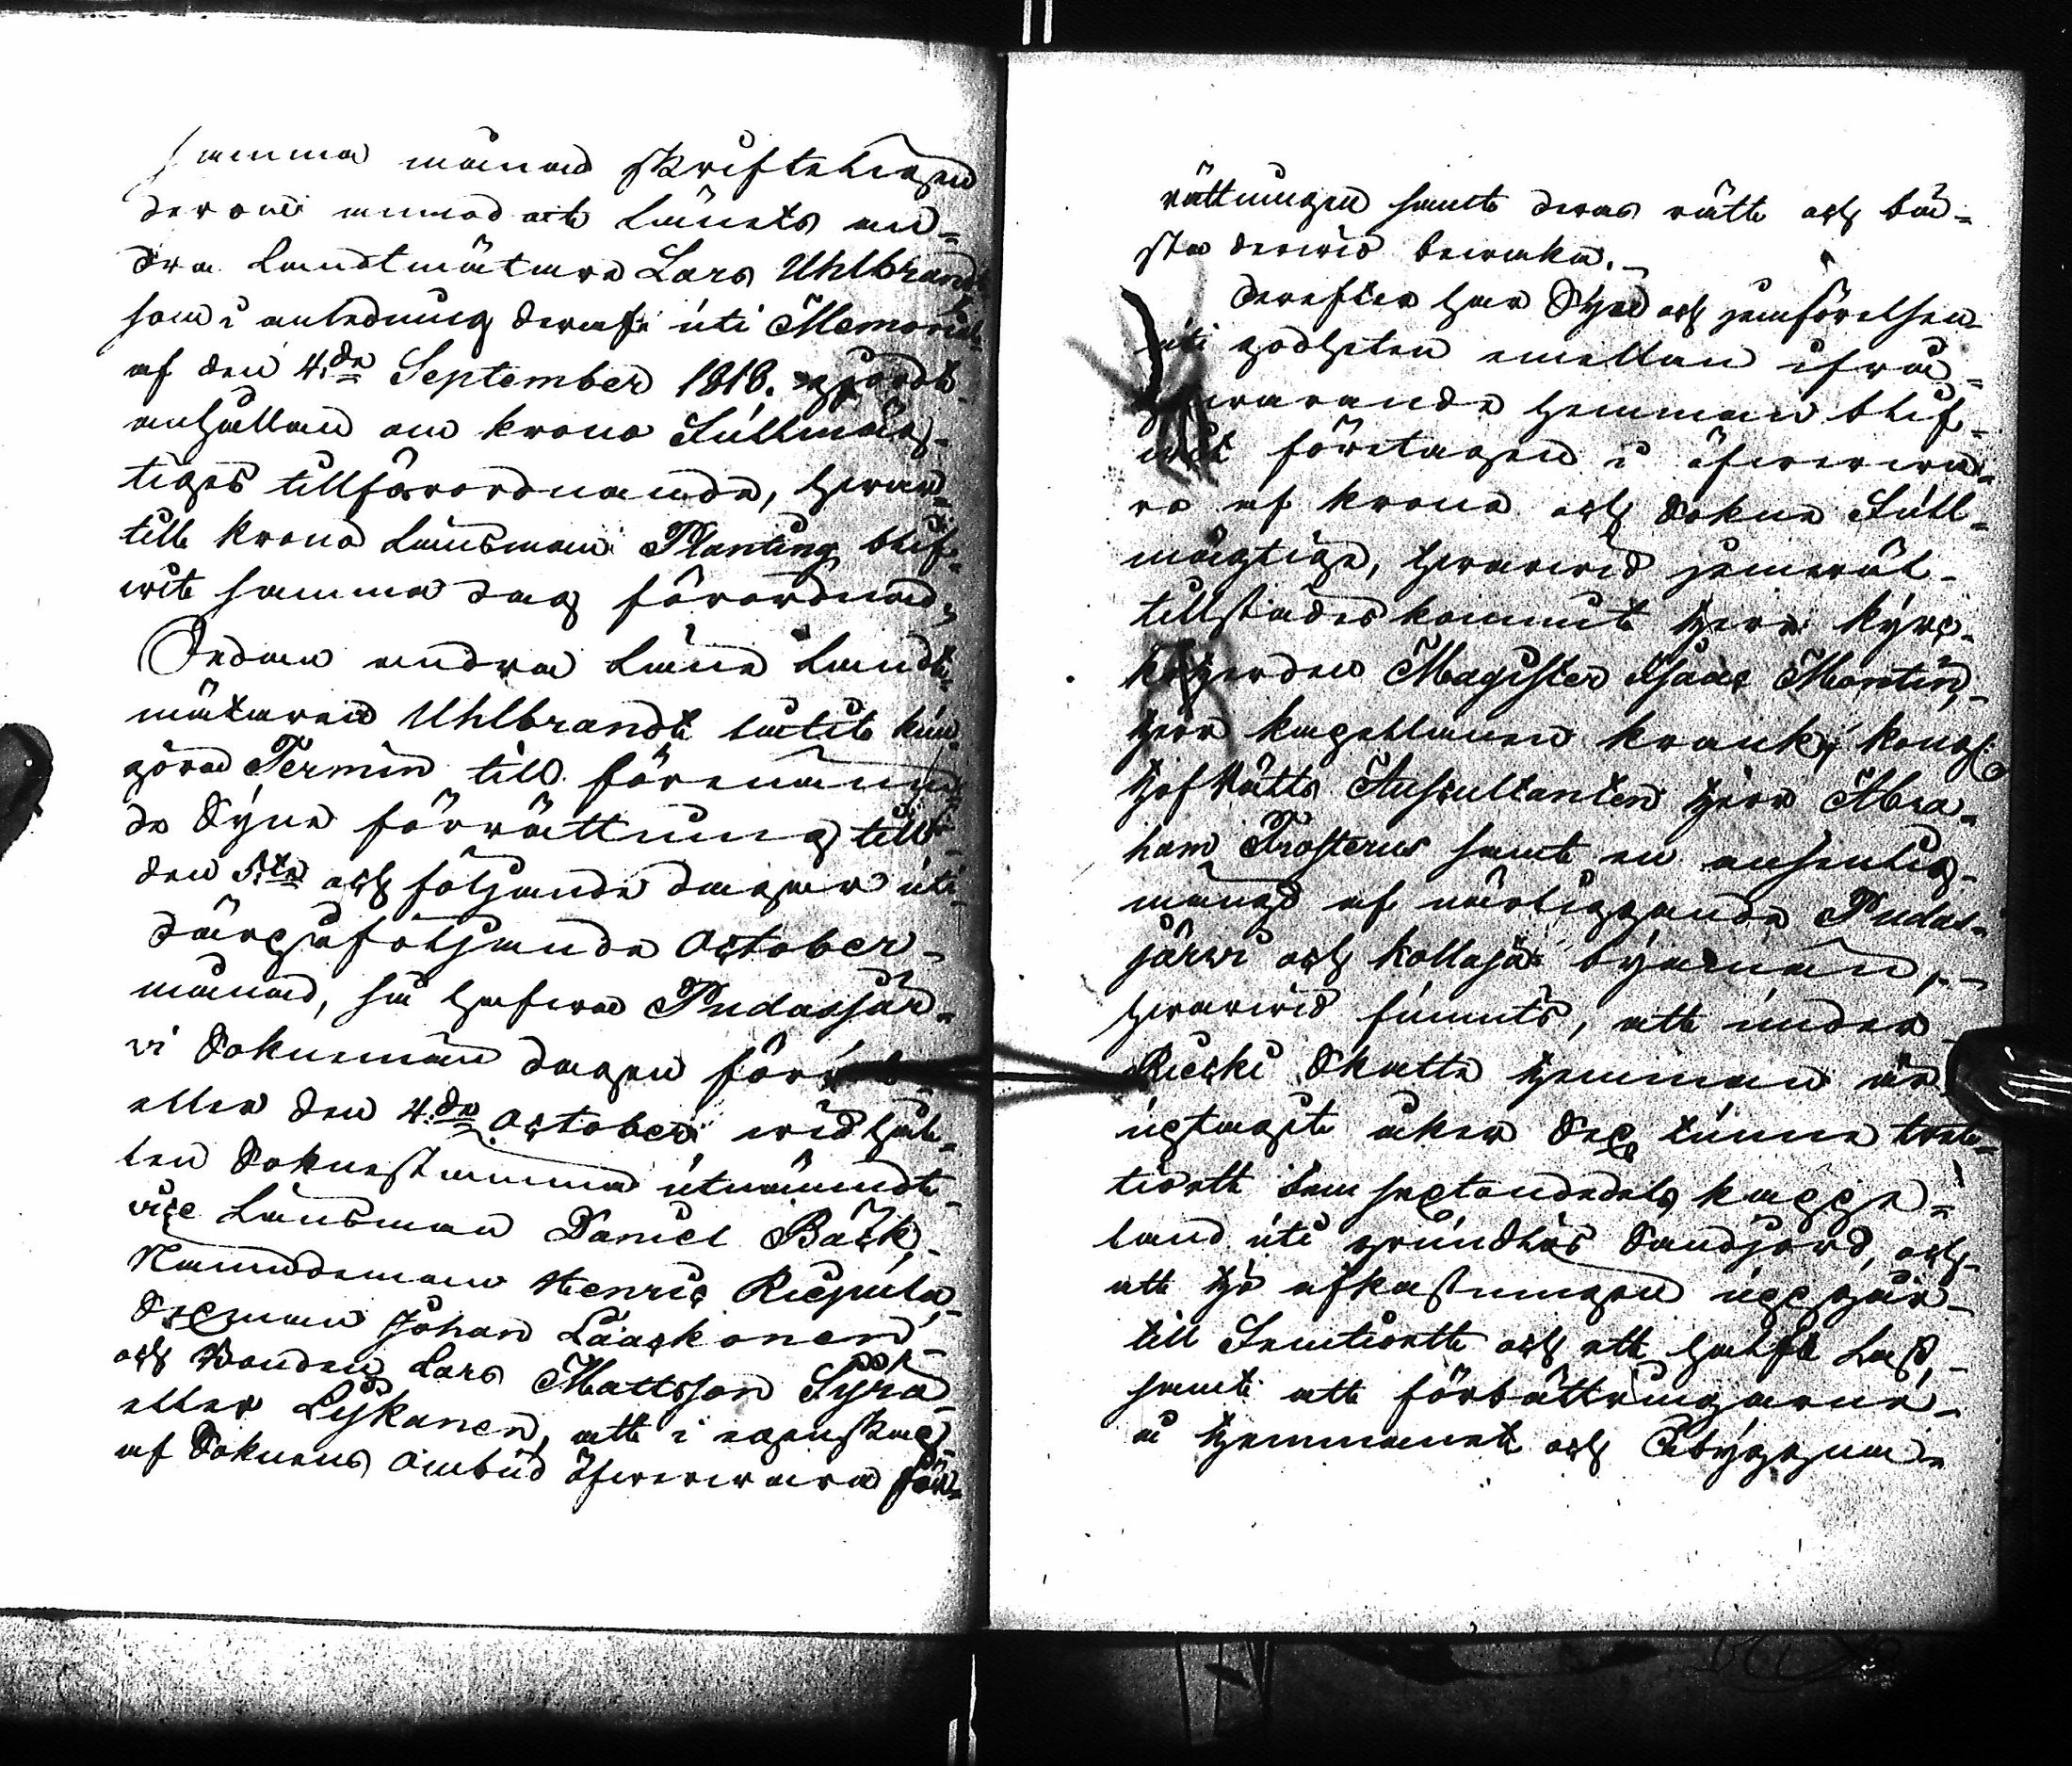 samma månad skrifteligen
derom anmodat Länets an-
dra Landtmätare Lars Uhlbrandt
som i anledning deraf uti Memorial
af den 4.de September 1818. gjordt
anhållan om krono Fullmäg-
tiges tillförordnande, hvar-
till krono Länsman Planting blif-
wit samma dag förordnad,
Sedan andra Läne Landt-
mätaren Uhlbrandt låtit kun-
göra Termin till förenämn-
de Syne förrättning till
den 5.te och följande dagar uti
därpåföljande October
månad, så hafwa Pudasjär-
wi Soknemän dagen förut
eller den 4.de October wid hål-
len Soknestämma utnämndt
vice Länsman Daniel Bäck,
Nämndeman Henric Riepula,
Sexman Johan Lääskonen
och Bonden Lars Mattsson Syrä
eller Lyskanen, att i egenskap
af Soknens ombud öfwerwara för-
rättningen samt deras rätt och bä-
sta derwid bewaka.
Derefter har Syn och jemförelsen
uti godheten emellan ifrå-
gawarande hemman blif-
wit företagen i öfwerwa-
ro af krono och Sokne Full-
mägtige, hwarwid jemwäl
tillstädes kommit Herr kyrc-
koherden Magister Isaac Montin,
Herr kapellanen Kranck, Kongl:
Hof Rätts Auscultanten Herr Abra-
ham Frosterus samt en ansenlig
mängd af närliggande Pudas-
järwi och Kollaja byamän,
hwarwid funnits, att under
Riecki Skatte hemman är
uptagit åker Sex tunne tret-
tioett fem sextondedels kappe-
land uti grundlös Sandjord, och
att hö afkastningen uppgår
till Femtioett och ett halft Lass,
samt att förbättringarne
å hemmanet och Åbyggna-